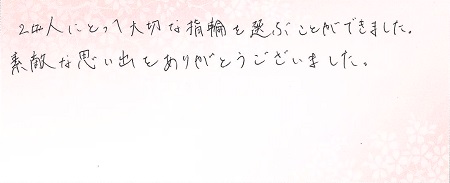 2人にとって大切な指輪を選ぶことができました。
素敵な思い出をありがとうございました。